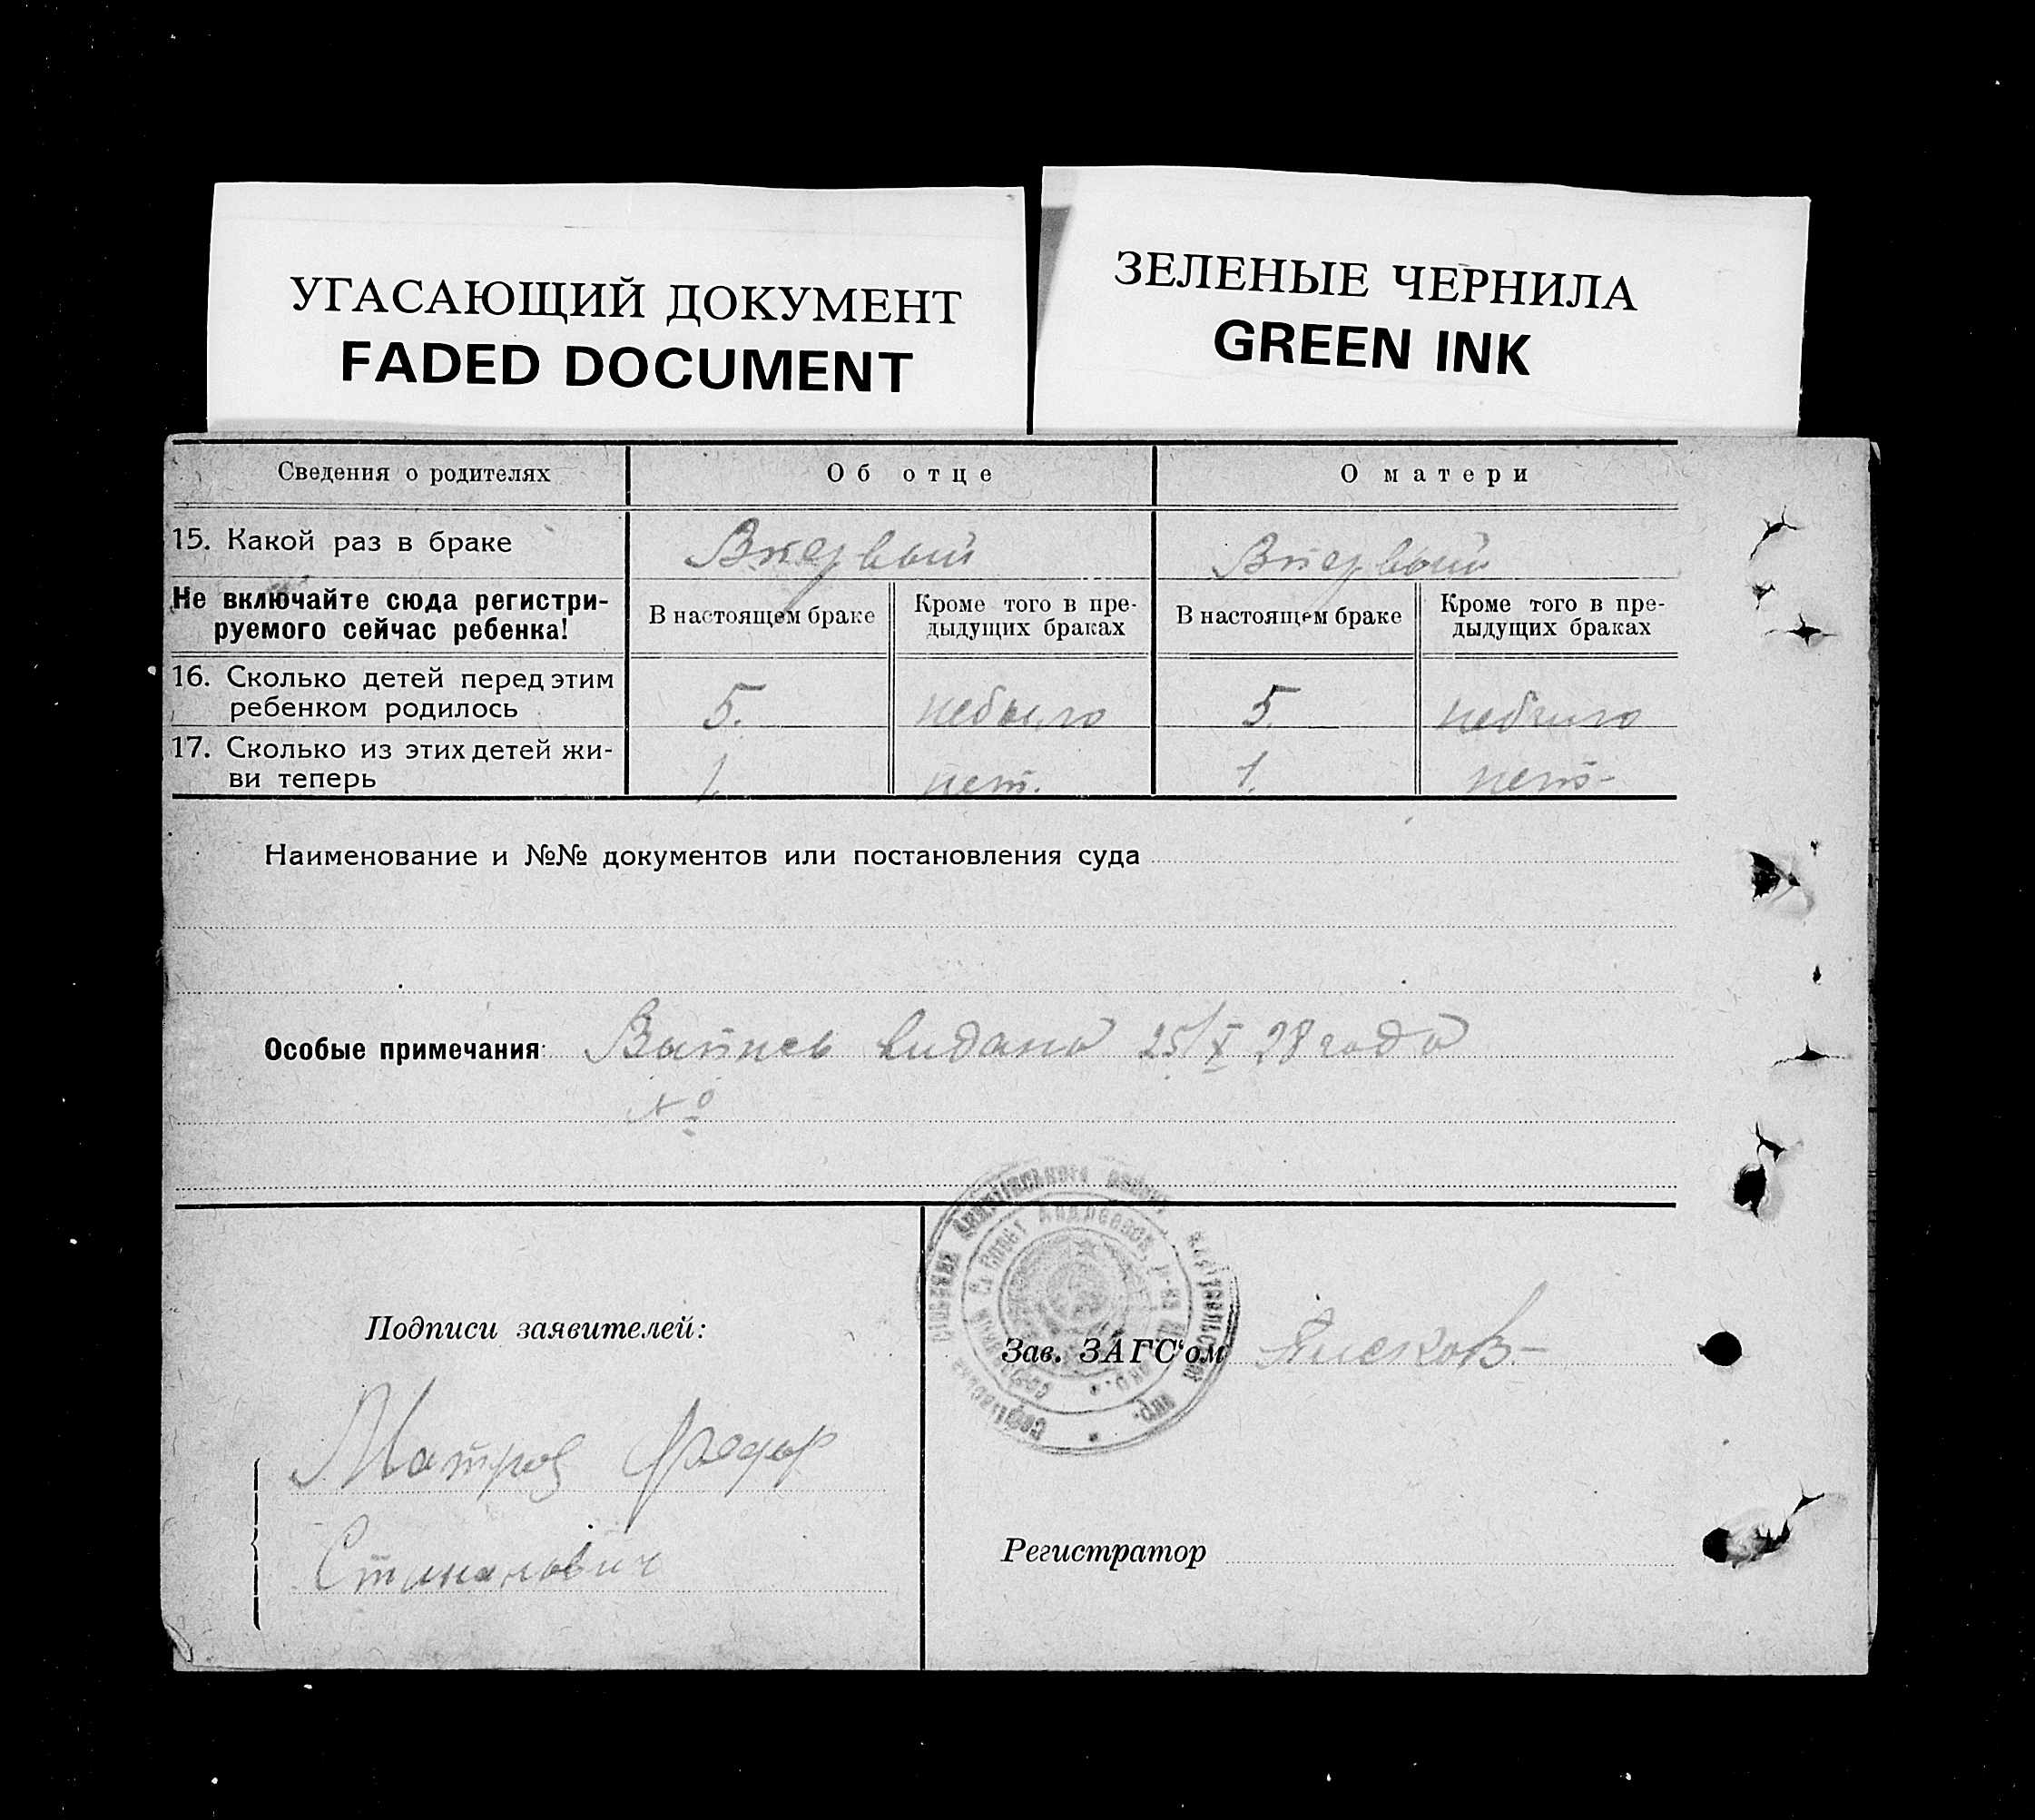 УГАСАЮЩИЙ ДОКУМЕНТ
FADED DOCUMENT
ЗЕЛЕНЫЕ ЧЕРНИЛА
GREEN INK
Сведения о родителях Об отце О матери
15. Какой раз в браке Впервый Впервый
Не включайте сюда регистри-
руемого сейчас ребенка!
В настоящем браке
Кроме того в пре-
дыдущих браках
В настоящем браке
Кроме того в пре-
дыдущих браках
16. Сколько детей перед этим
ребенком родилось
5. небыло 5. небыло
17. Сколько из этих детей жи-
ви теперь
1. нет. 1. нет-
Наименование и №№ документов или постановления суда
Особые примечания: видано 25/X 28 года
№
Подписи заявителей:
Федор
Зав. ЗАГС'ом
Регистратор